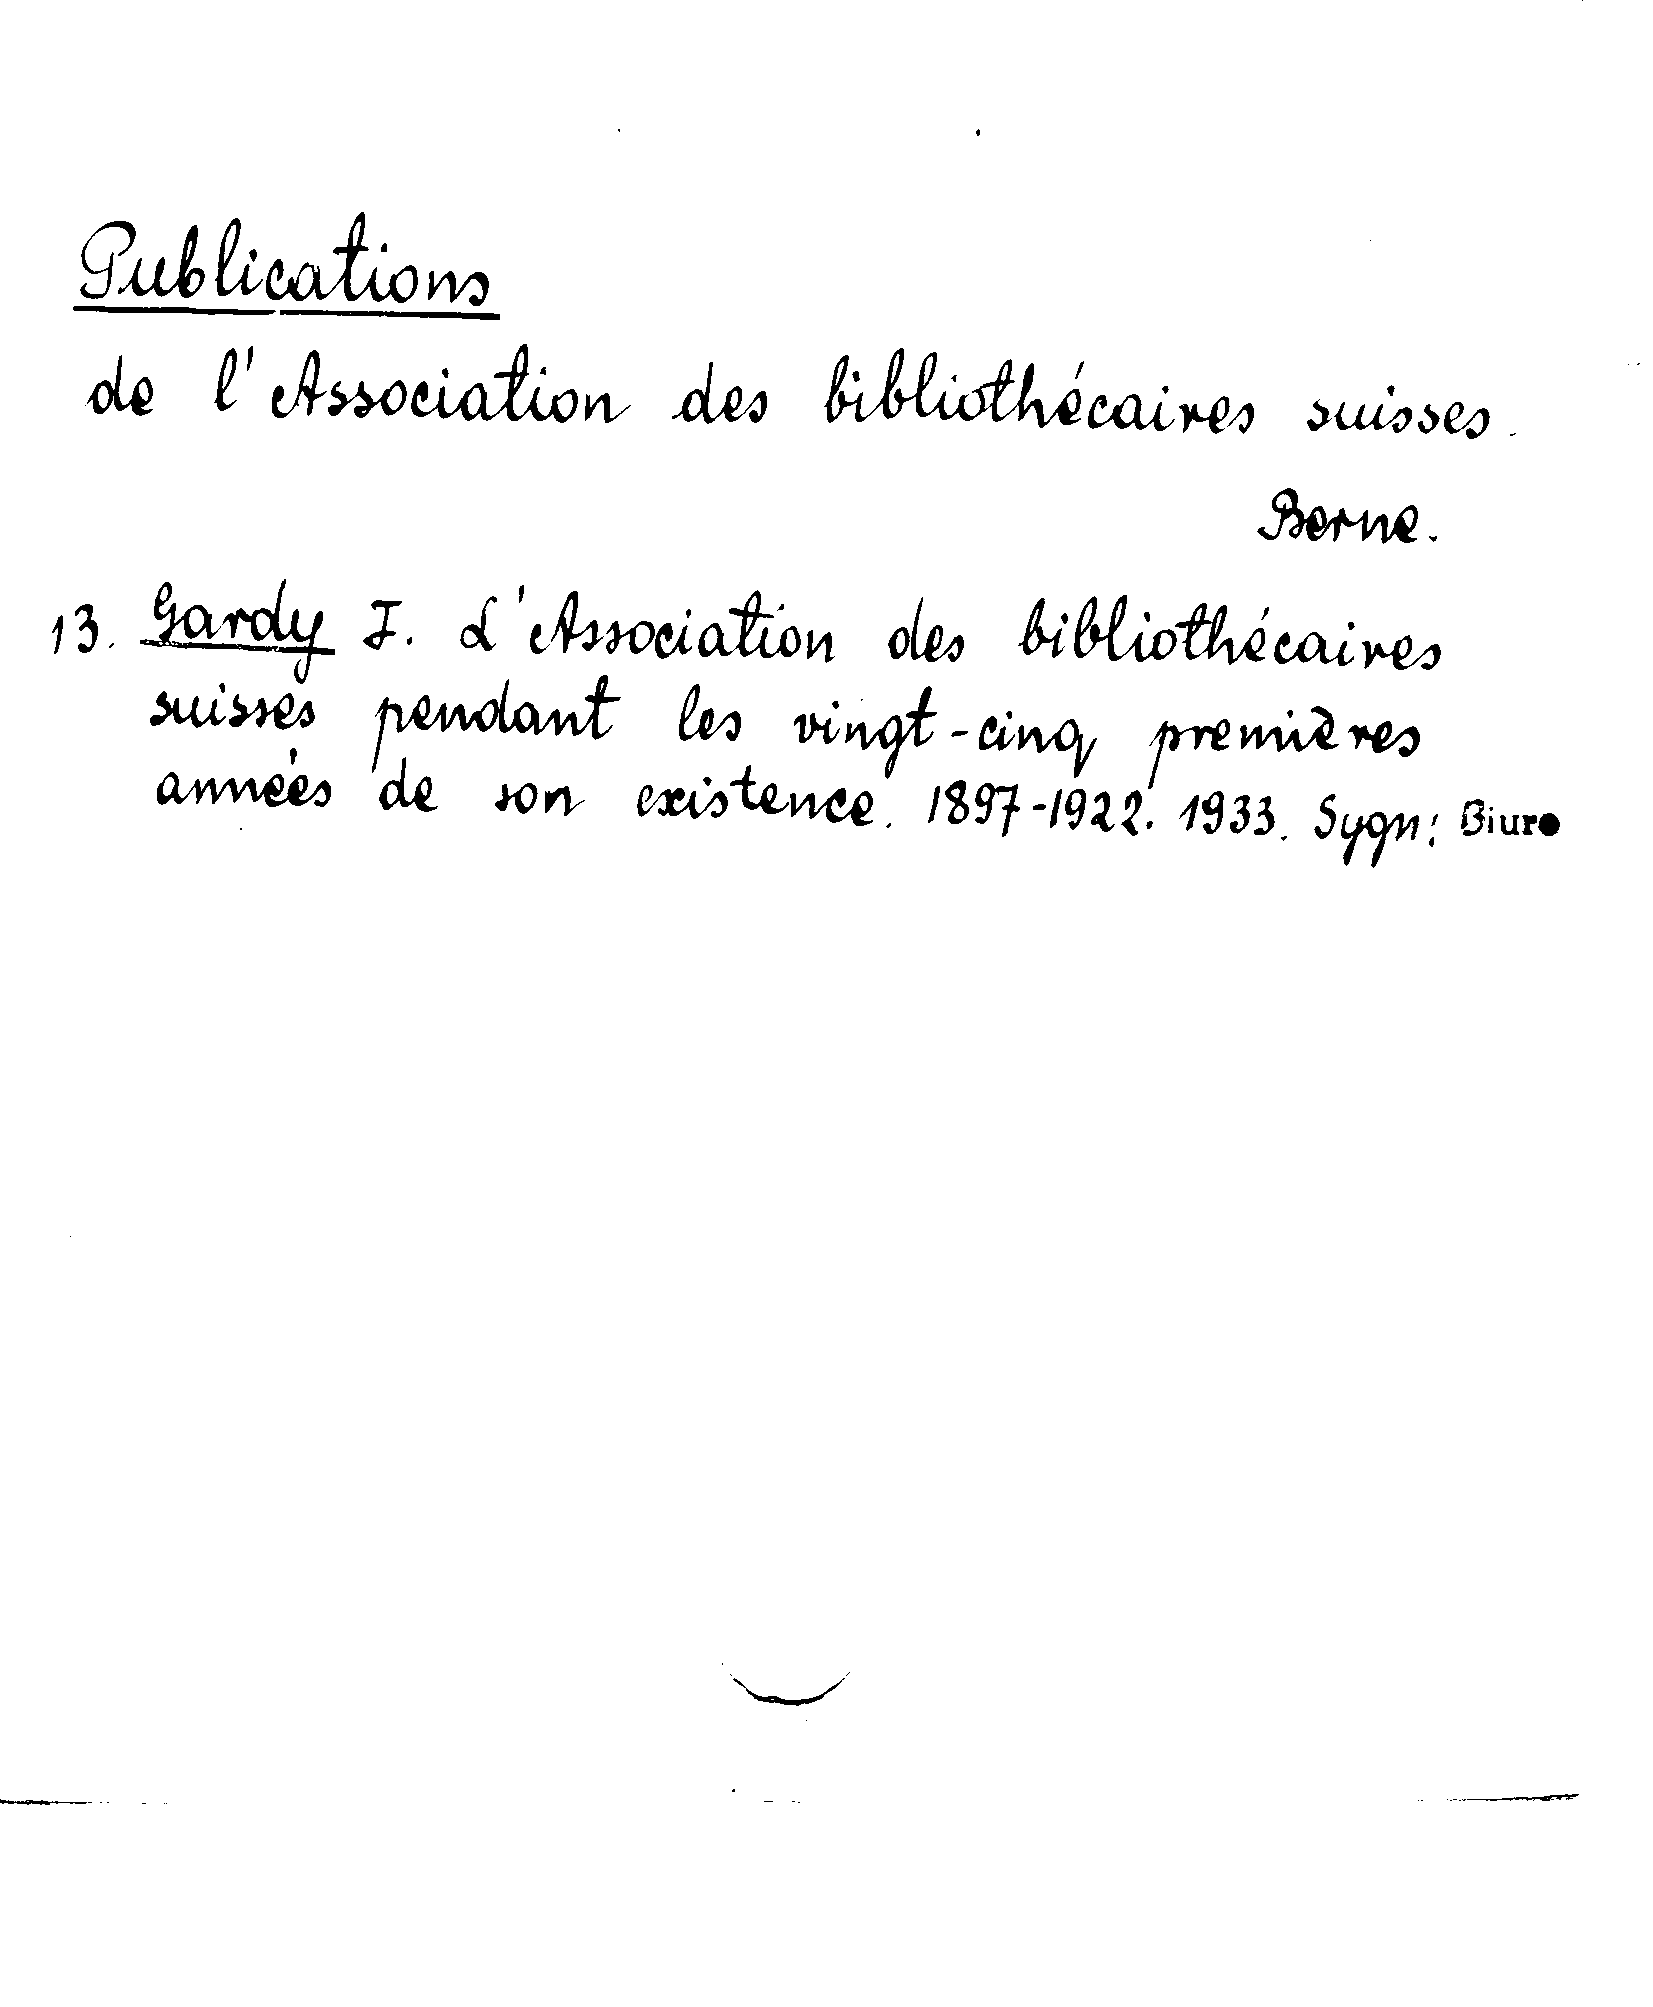 Publications
de l'Association des bibliothécaires suisses.
Berne.
13. Gardy F. L'Association des bibliothécaires
suisses pendant les vingt-cinq premières
années de son existence. 1897-1922. 1933. Sygn: Biuro